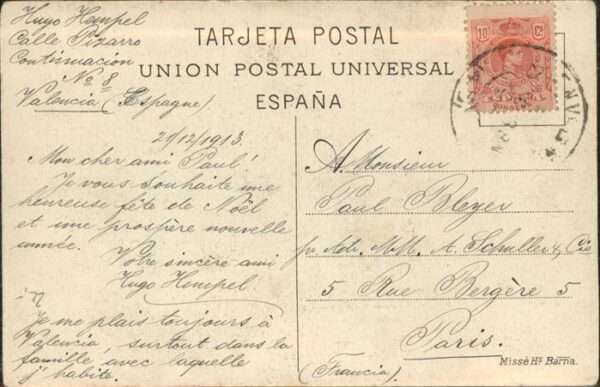 Hugo Hempel
Calle Pizarro
Continuacion
No 8
Valencia (Espagne)
TARJETA POSTAL
UNION POSTAL UNIVERSAL
ESPAÑA
10 Cs
21/12/1913.
Mon cher ami Paul!
Je vous souhaite une
heureuse fête de Noël
et une prospère nouvelle
année.
Votre sincère ami
Hugo Hempel.
Je me plais toujours à
Valencia, surtout dans la
famille avec laquelle
j'habite.
A Monsieur
Paul Bleyer
pr Adr. M.M. A. Schuller & Cie
5 Rue Bergère 5
Paris.
(Francia)
Missé Hs Barna.